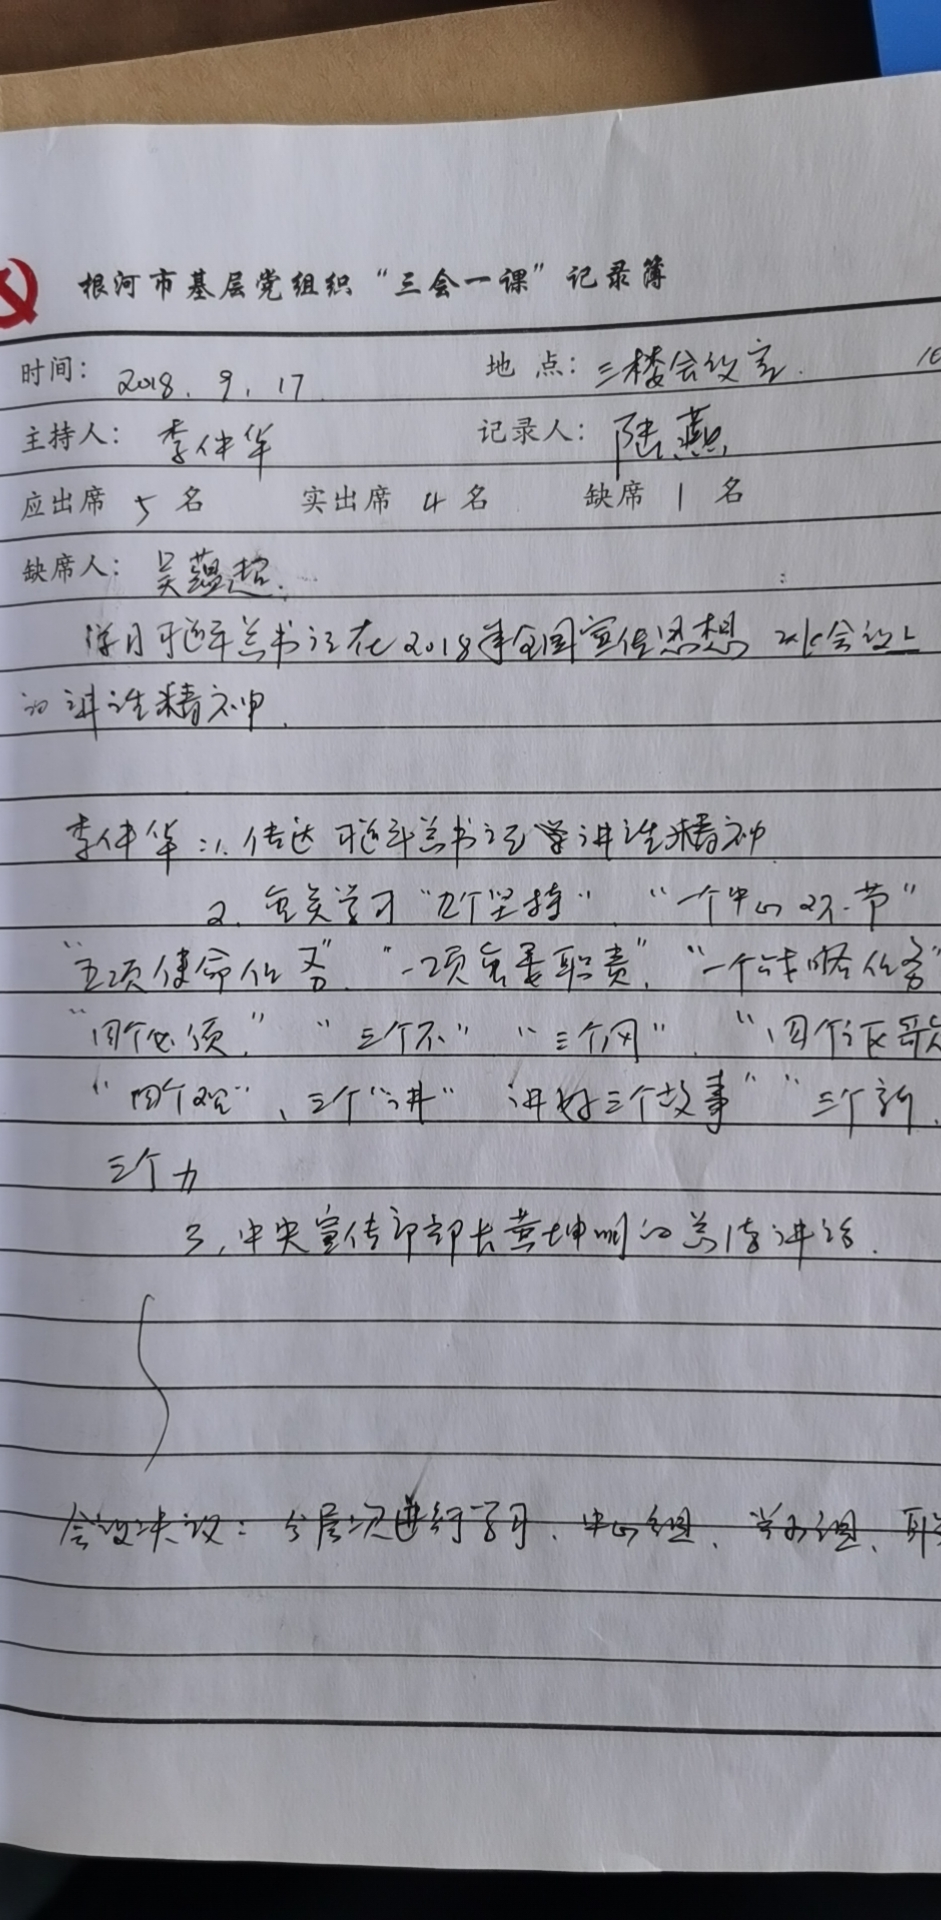 根河市基层党组织“三会一课”记录簿
时间： 2018.9.17 地点：三楼会议室.
主持人： 李仲华 记录人： 陆燕
应出席 5 名 实出席 4 名 缺席 1 名
缺席人： 吴蕴超.
学习习近平总书记在2018年全国宣传思想工作会议上
的讲话精神.
李仲华：1.传达习近平总书记讲话精神
2.重点学习“九个坚持”.“一个中心环节”
“五项使命任务”.“一项重要职责”.“一个战略任务”
“四个必须.”“三个不”“三个网”.“四个讴歌
“四个观”、三个“讲” 讲好三个故事”“三个新.
三个力
3.中央宣传部部长黄坤明的总结讲话.
会议决议：分层次进行学习、中心组、学习组、